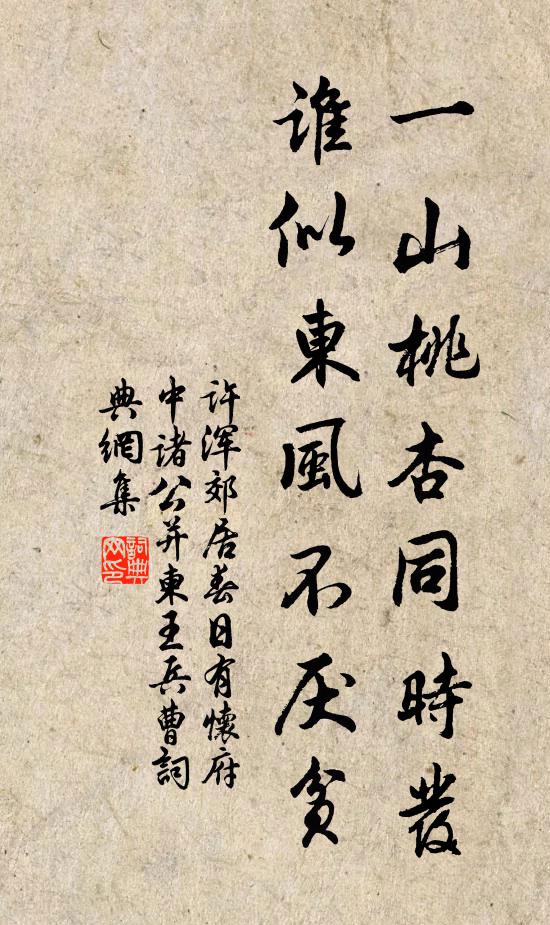 一山桃杏同時發
誰似東風不厌貧
許浑郊居春日有懷府
中诸公并東王兵曹詞
典網集
詞典
网印